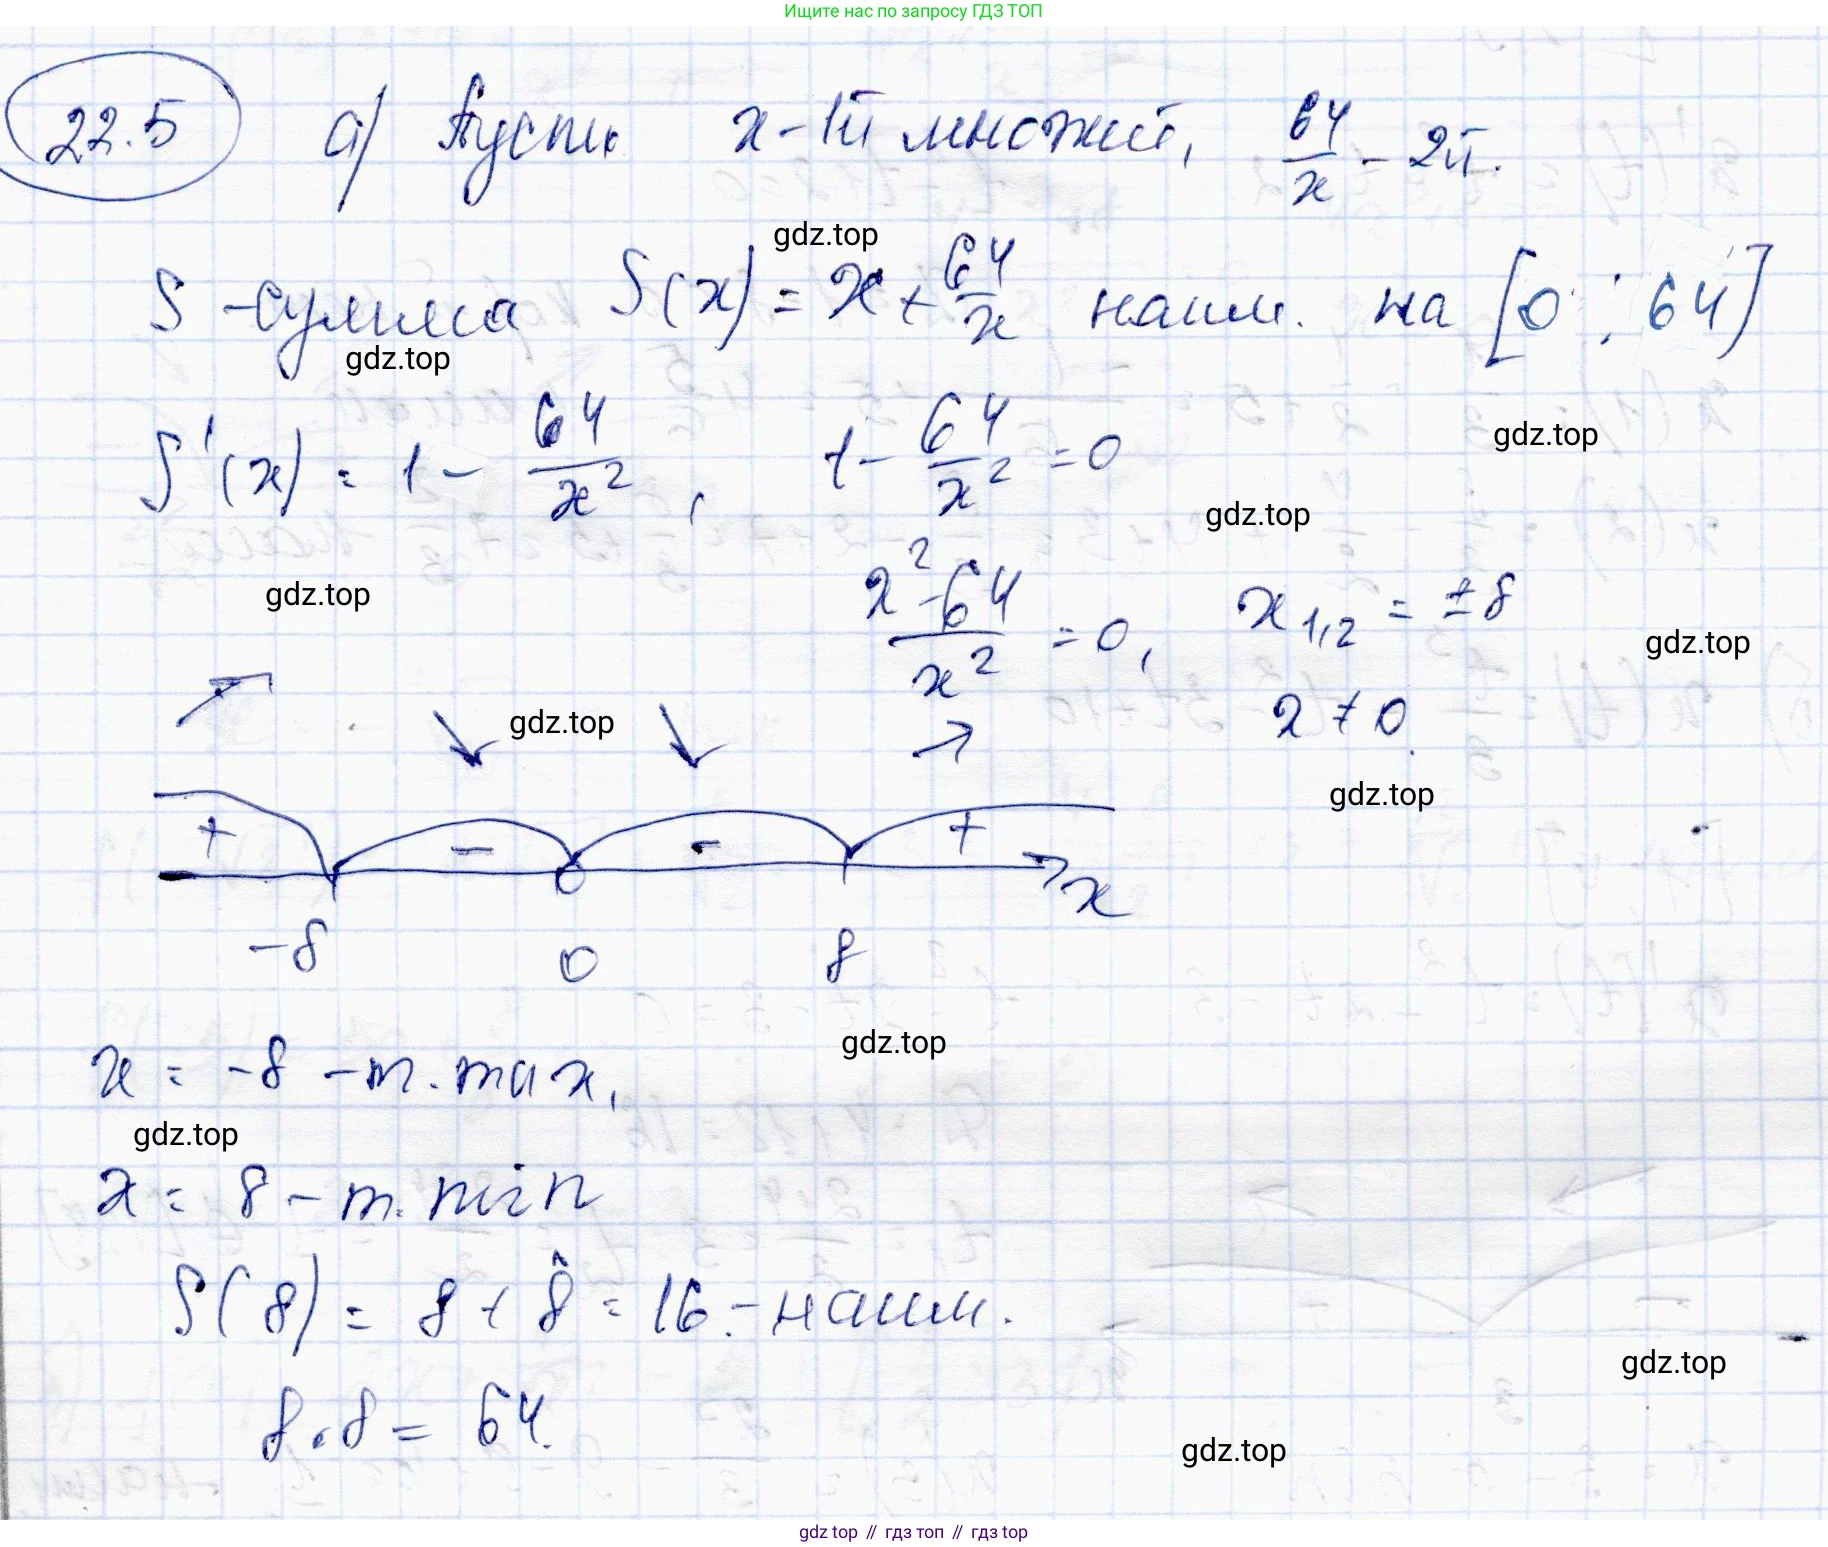 Ищите нас по запросу ГДЗ ТОП
22.5 а) Пусть x - 1й множит, 64/x - 2й.
gdz.top
S - сумма S(x) = x + 64/x наим. на [0 ; 64]
gdz.top
gdz.top
S'(x) = 1 - 64/x², 1 - 64/x² = 0
gdz.top
gdz.top
(x² - 64)/x² = 0, x₁,₂ = ±8
gdz.top
x ≠ 0.
gdz.top
gdz.top
+ - - + x
-8 0 8
gdz.top
x = -8 - т. max,
gdz.top
x = 8 - т. min
S(8) = 8 + 8 = 16 - наим.
gdz.top
8 · 8 = 64.
gdz.top
gdz top // гдз топ // гдз top